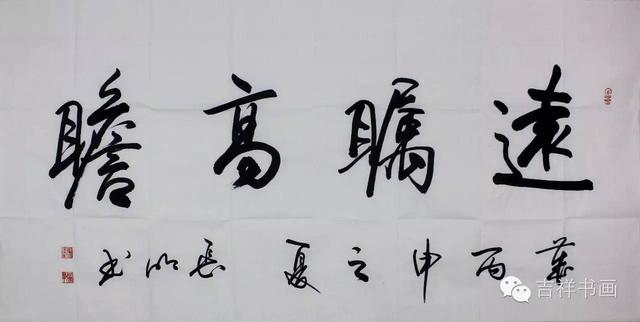 遠矚高瞻
歲丙申之夏長书
吉祥书画